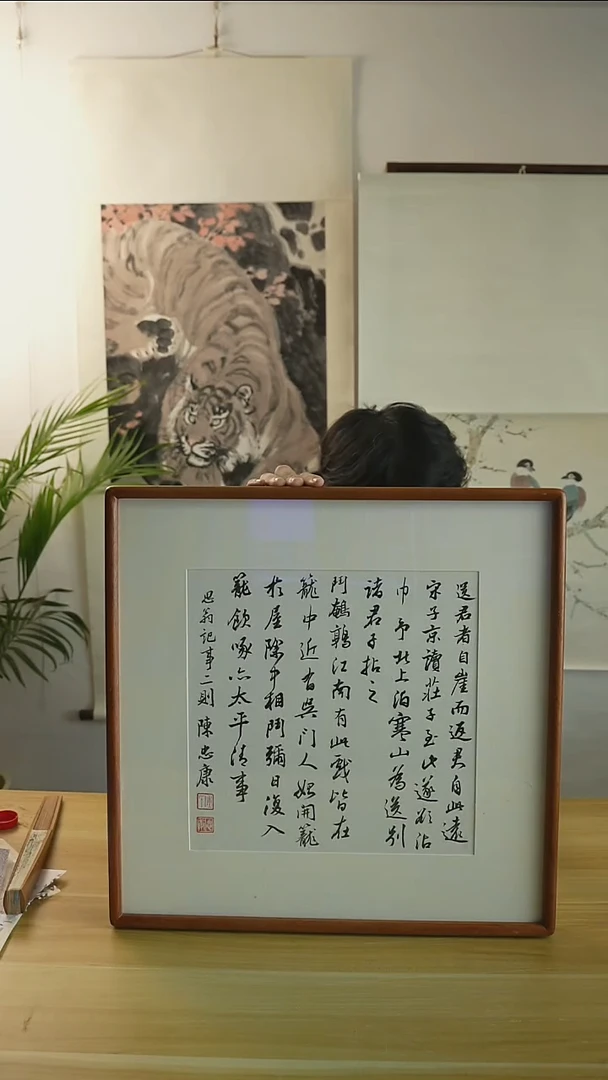 送君者自崖而返君自此遠
宋子京讀莊子至此遂欲沾
巾予北上泊寒山為送別
諸君子拈之
鬥鵪鶉江南有此戲皆在
籠中近有吳門人始開籠
於屋除中相鬥彌日復入
籠飲啄亦太平清事
思翁記事二則陳忠康